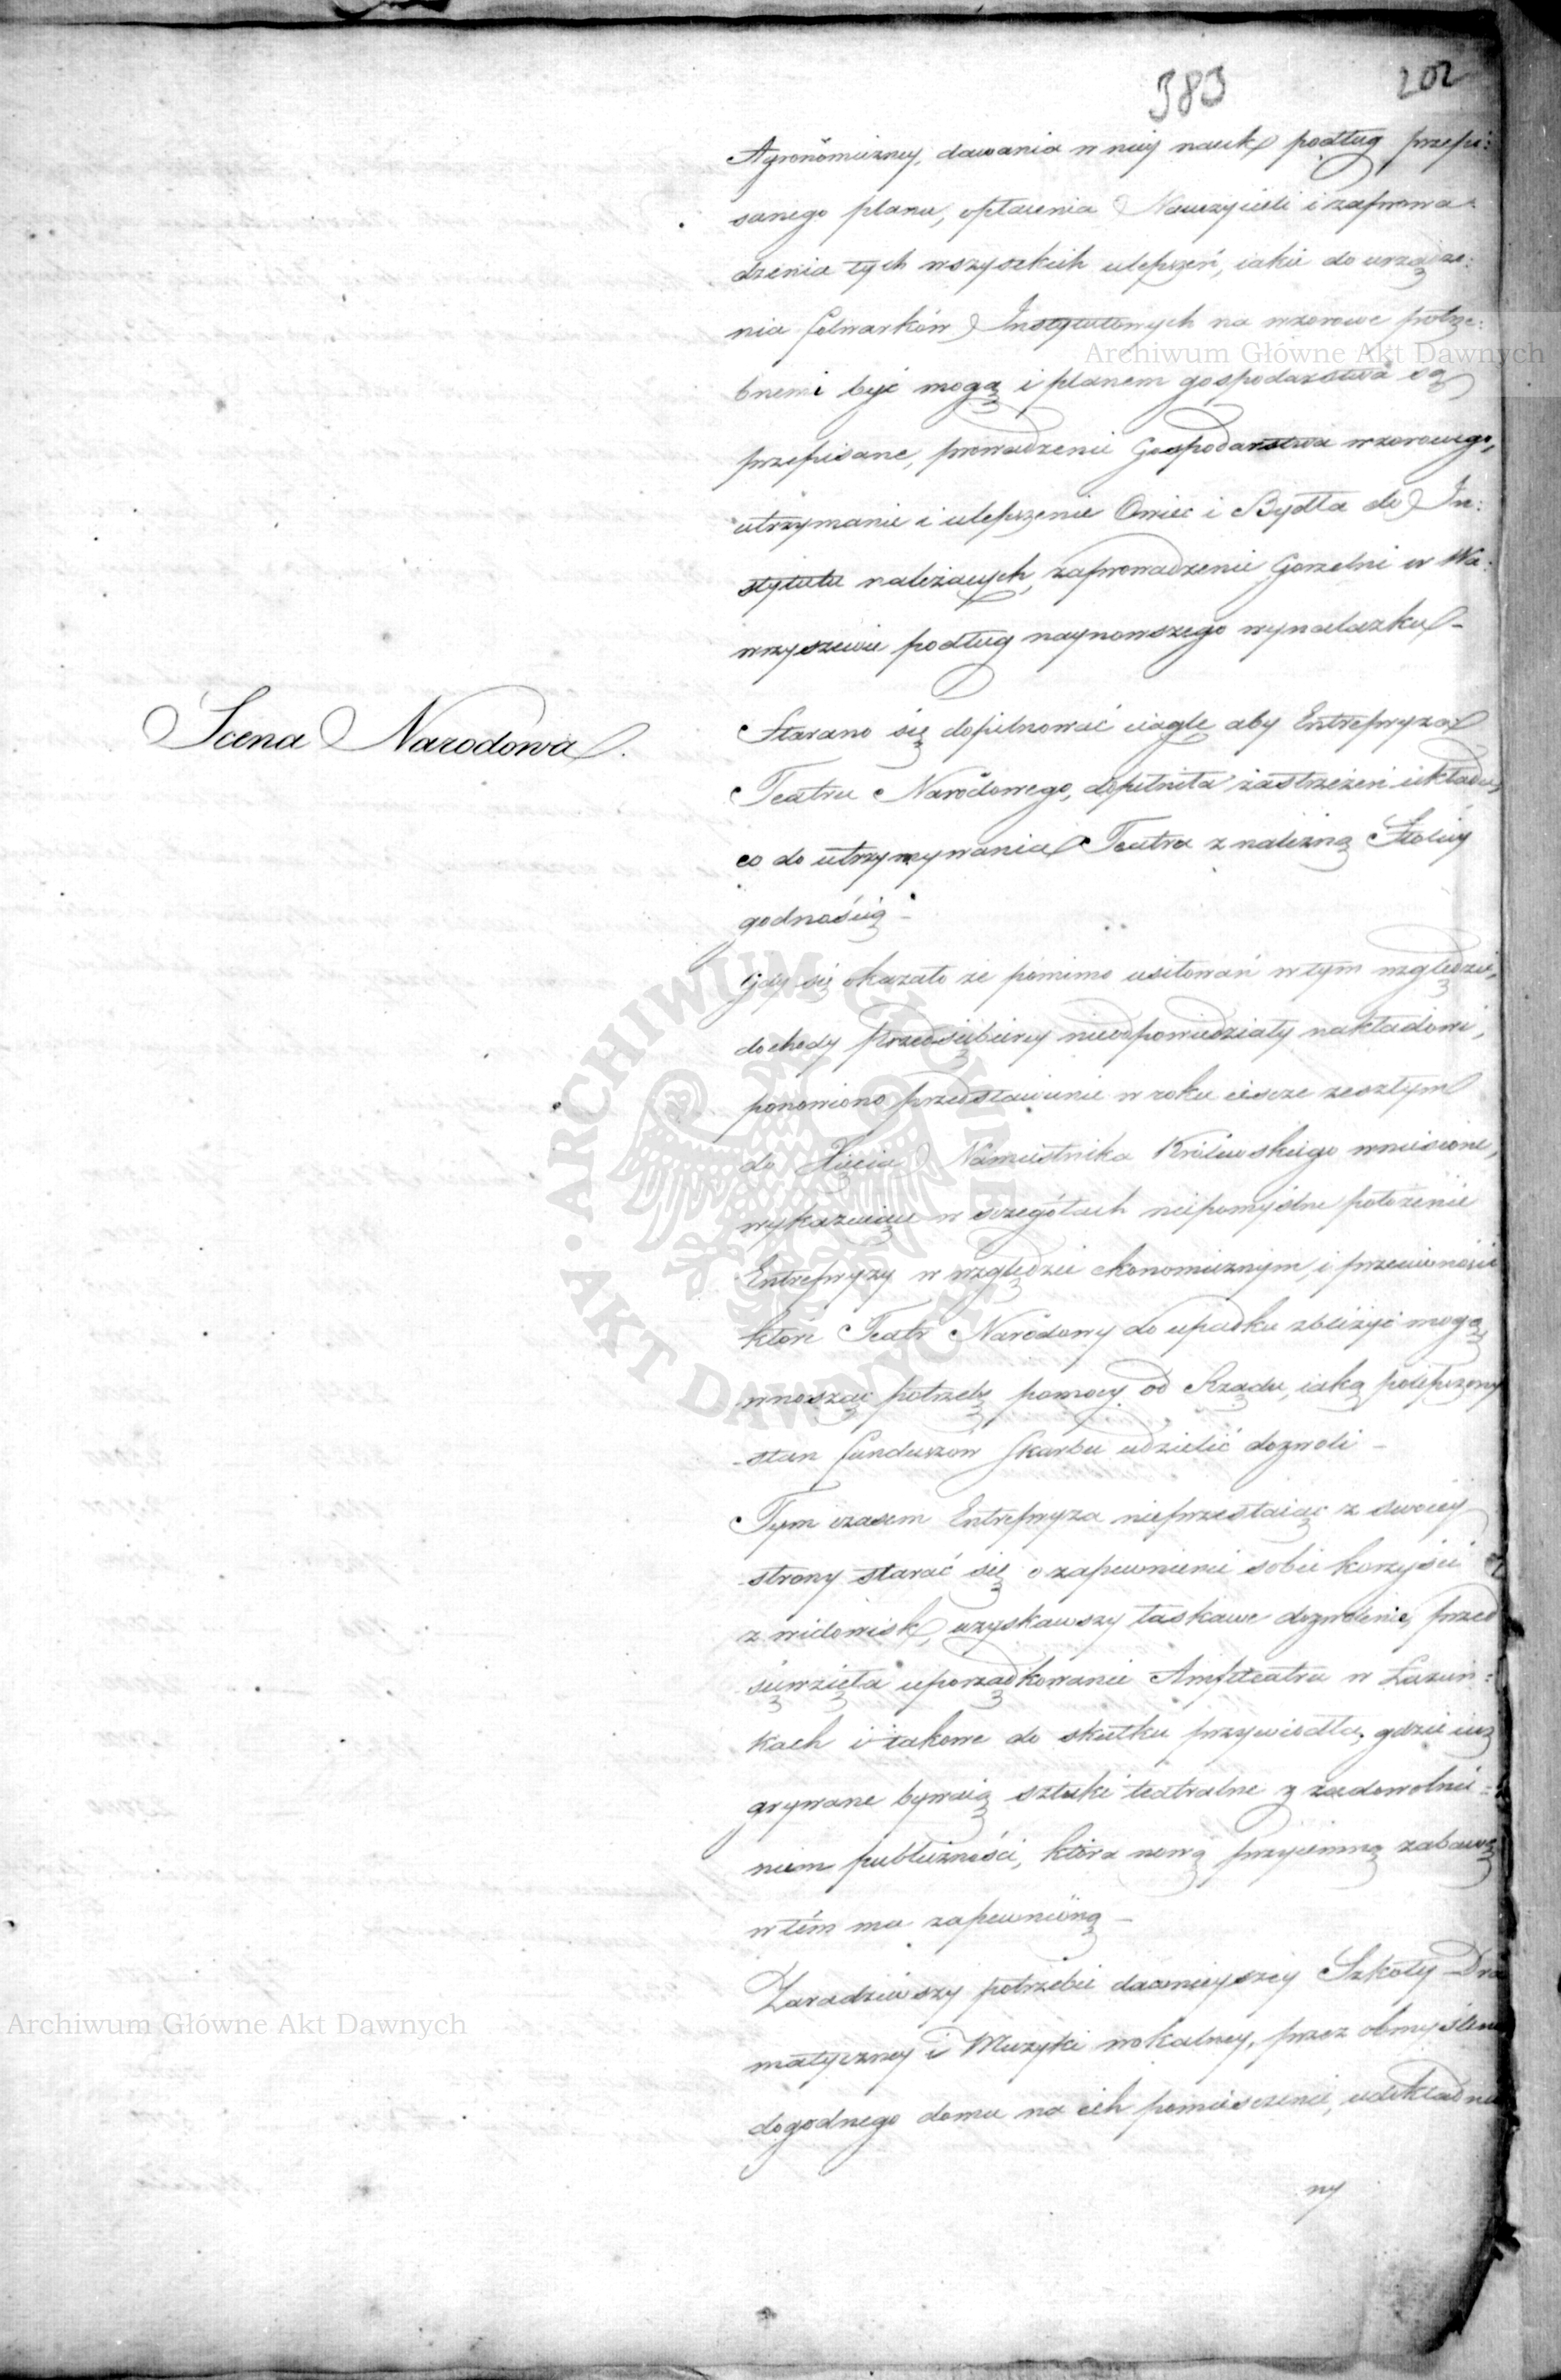 383 202
Agronomiczney, dawania w niéy nauk podług przepi:
sanego planu, opłacenia Nauczycieli i zaprowa:
dzenia tych wszyszkich ulepszeń, iakie do urządze:
nia folwarków Instytutowych na wzorowe potrze:
bnemi być mogą i planem gospodarstwa są
przepisane, prowadzenie Gospodarstwa wzorowego,
utrzymanie i ulepszenie Owiec i Bydła do In:
stytutu należących, zaprowadzenie Gorzelni w Wa:
wrzyszewie podług naynowszego wynalazku –
Scena Narodowa.
Starano się dopilnować ciągle aby Entrepryza
Teatru Narodowego, dopełniła zastrzeżeń układu,
co do utrzymywania Teatru z należną Stolicy
godnością –
Gdy się okazało że pomimo usiłowań w tym względzie,
dochody przedsiębiercy nieodpowiedziały nakładowi,
ponowiono przedstawienie w roku ieszcze zeszłym
do Xięcia Namiestnika Królewskiego wniesione,
wykazuiąc w szczegółach niepomyślne położenie
Entrepryzy w względzie ekonomicznym, i przeciwności
które Teatr Narodowy do upadku zbliżyć mogą
wnosząc potrzebę pomocy od Rządu, iaką polepszony
stan funduszow Skarbu udzielić dozwoli –
Tym czasem Entrepryza nieprzestaiąc z swoiey
strony starać się o zapewnienie sobie korzyści
z widowisk, uzyskawszy łaskawe dozwolenie, przed
sięwzięła uporządkowanie Amfiteatru w Łazien=
kach i takowe do skutku przywiodła, gdzie iuż
grywane bywaią sztuki teatralne z zadowolnie=
niem publiczności, która nową przyiemną zabawę
w tém ma zapewnioną –
Zaradziwszy potrzebie dawnieyszey Szkoły Dra
matyczney i Muzyki wokalney, przez obmyślenie
dogodnego domu na ich pomieszczenie, udokładnio
ny
Archiwum Główne Akt Dawnych
Archiwum Główne Akt Dawnych
ARCHIWUM GŁÓWNE · AKT DAWNYCH ·